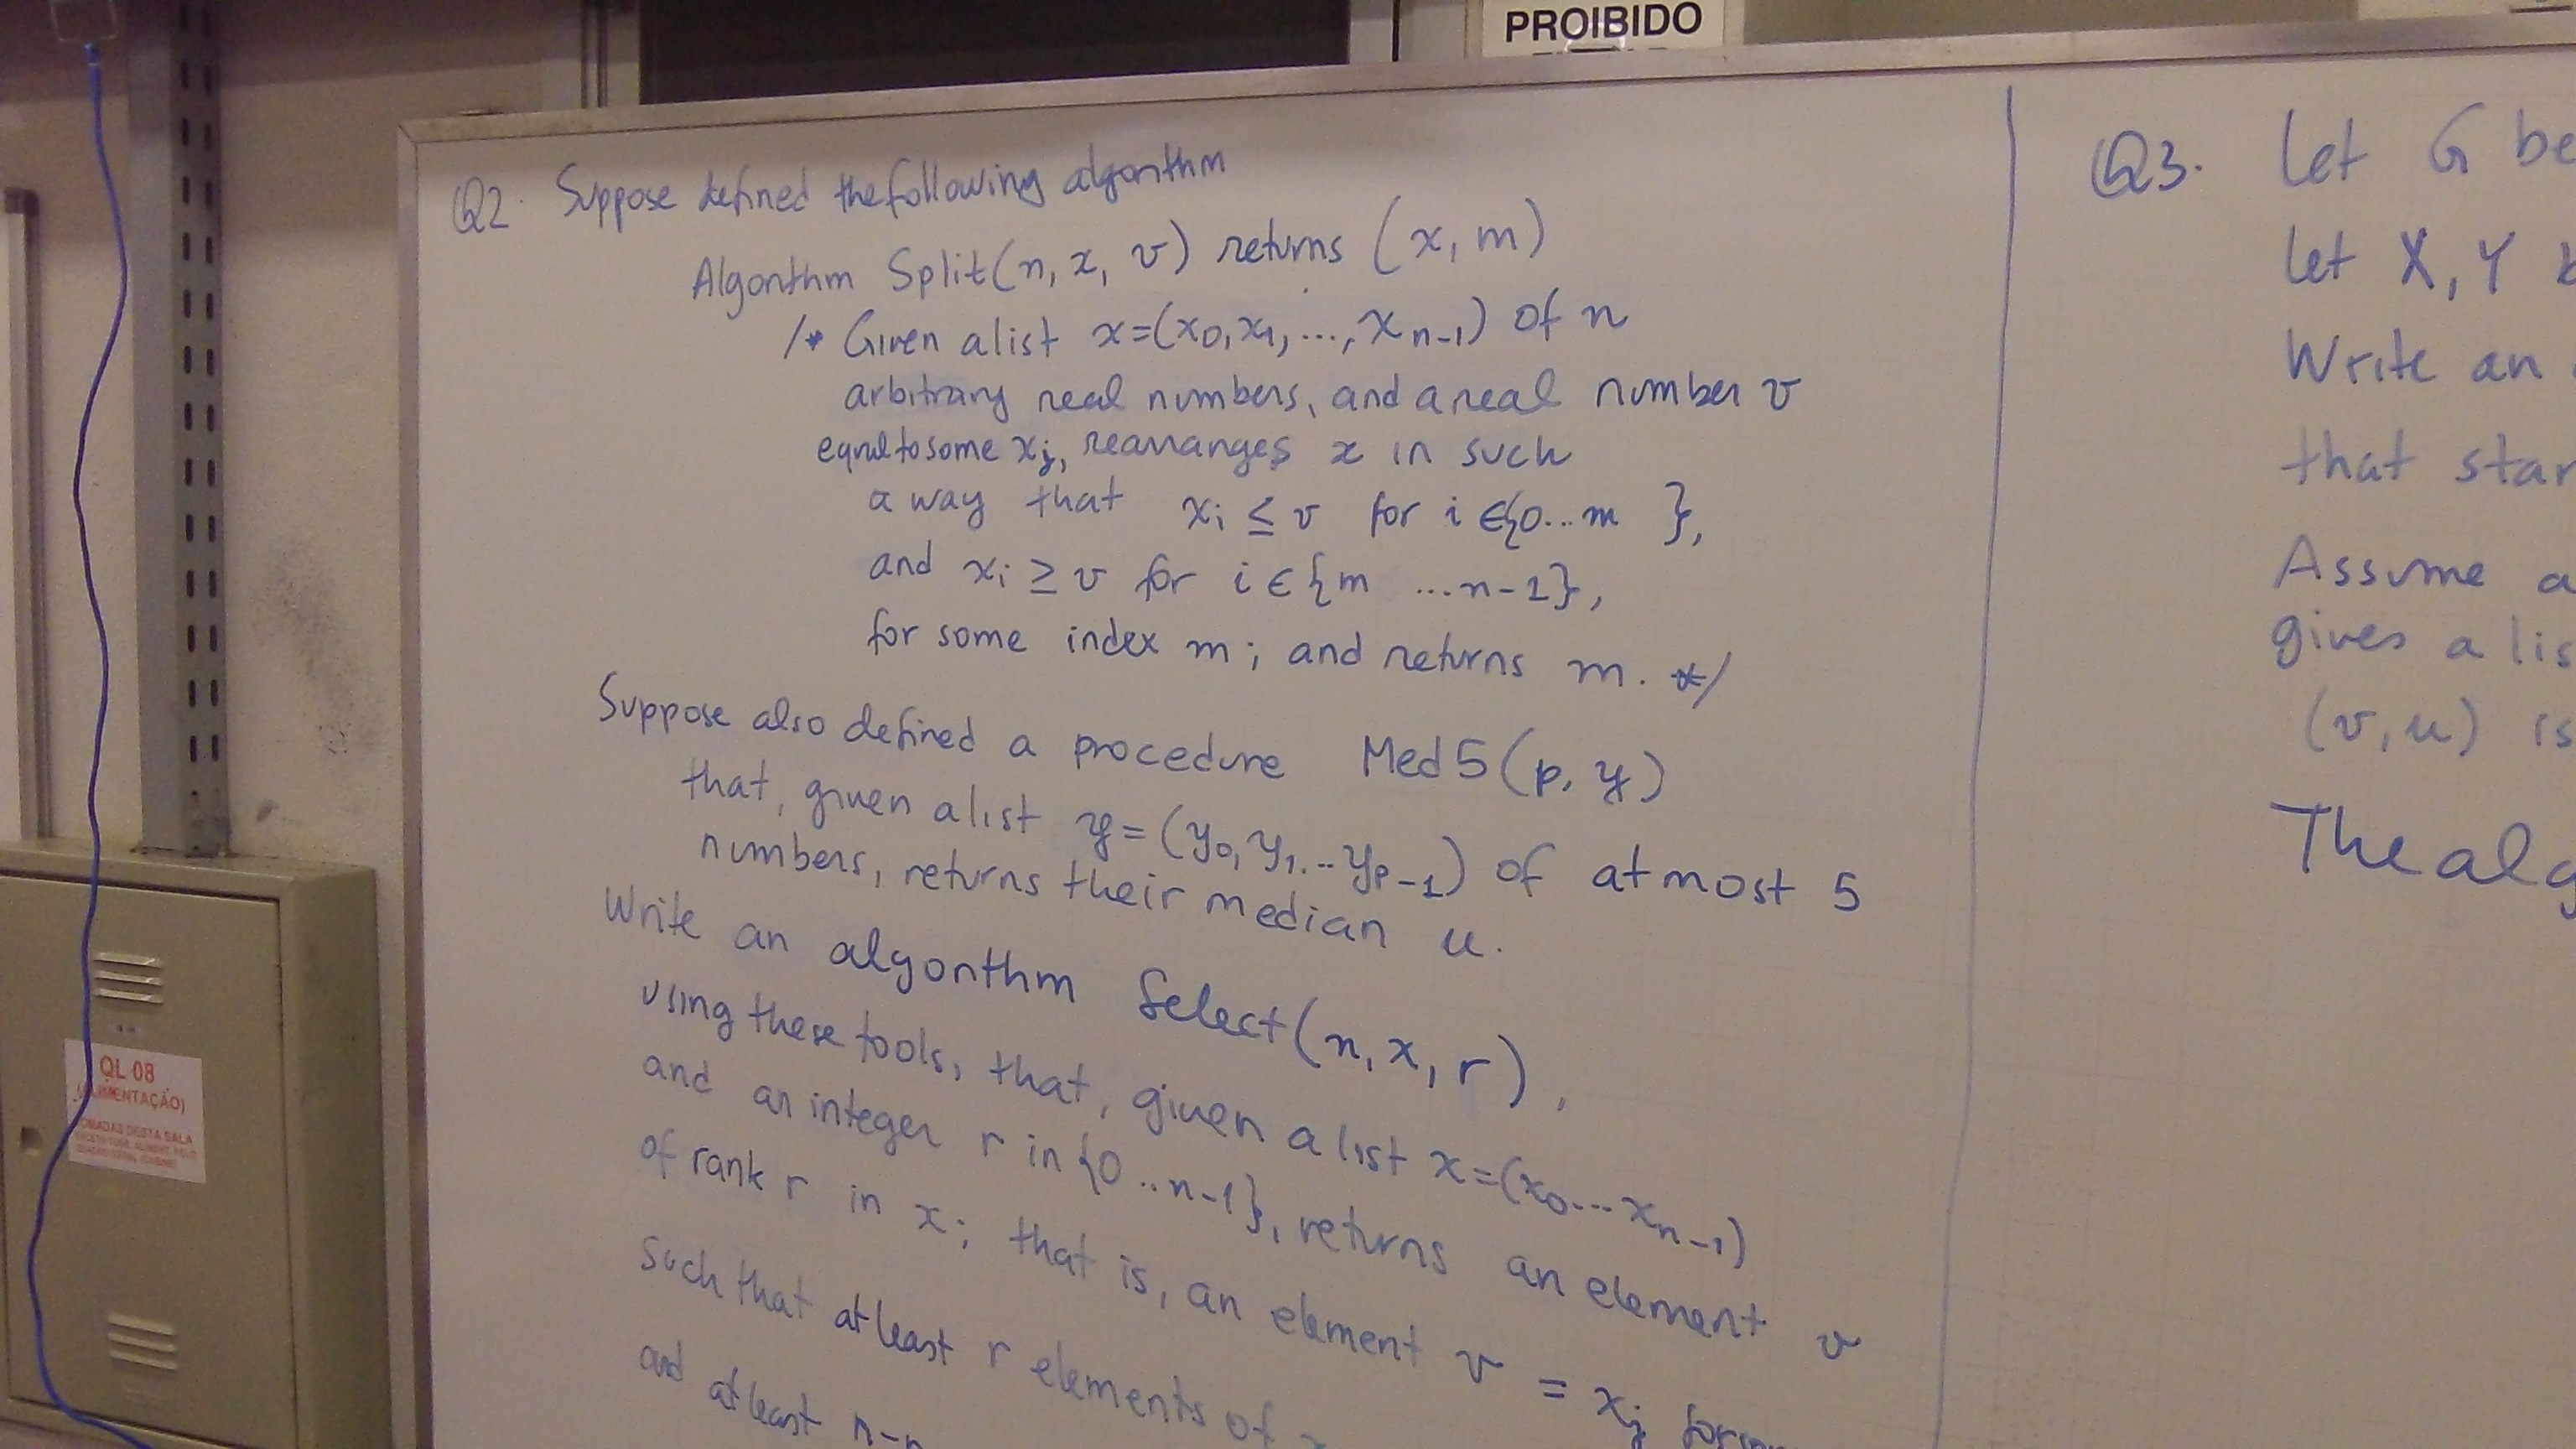 PROIBIDO
Q2. Suppose defined the following algorithm
Algorithm Split(n, x, v) returns (x, m)
/* Given a list x=(x0, x1, ..., xn-1) of n
arbitrary real numbers, and a real number v
equal to some xj, rearranges x in such
a way that xi ≤ v for i ∈{0...m },
and xi ≥ v for i ∈{m ...n-1},
for some index m; and returns m. */
Suppose also defined a procedure Med5(p, y)
that, given a list y=(y0, y1...yp-1) of at most 5
numbers, returns their median u.
Write an algorithm Select(n, x, r),
using these tools, that, given a list x=(x0...xn-1)
and an integer r in {0..n-1}, returns an element v
of rank r in x; that is, an element v = xj for
such that at least r elements of
and at least n-
Q3. Let G be
let X, Y
Write an
that star
Assume a
gives a lis
(v, u) is
The alg
QL 08
(ALIMENTAÇÃO)
TOMADAS DESTA SALA